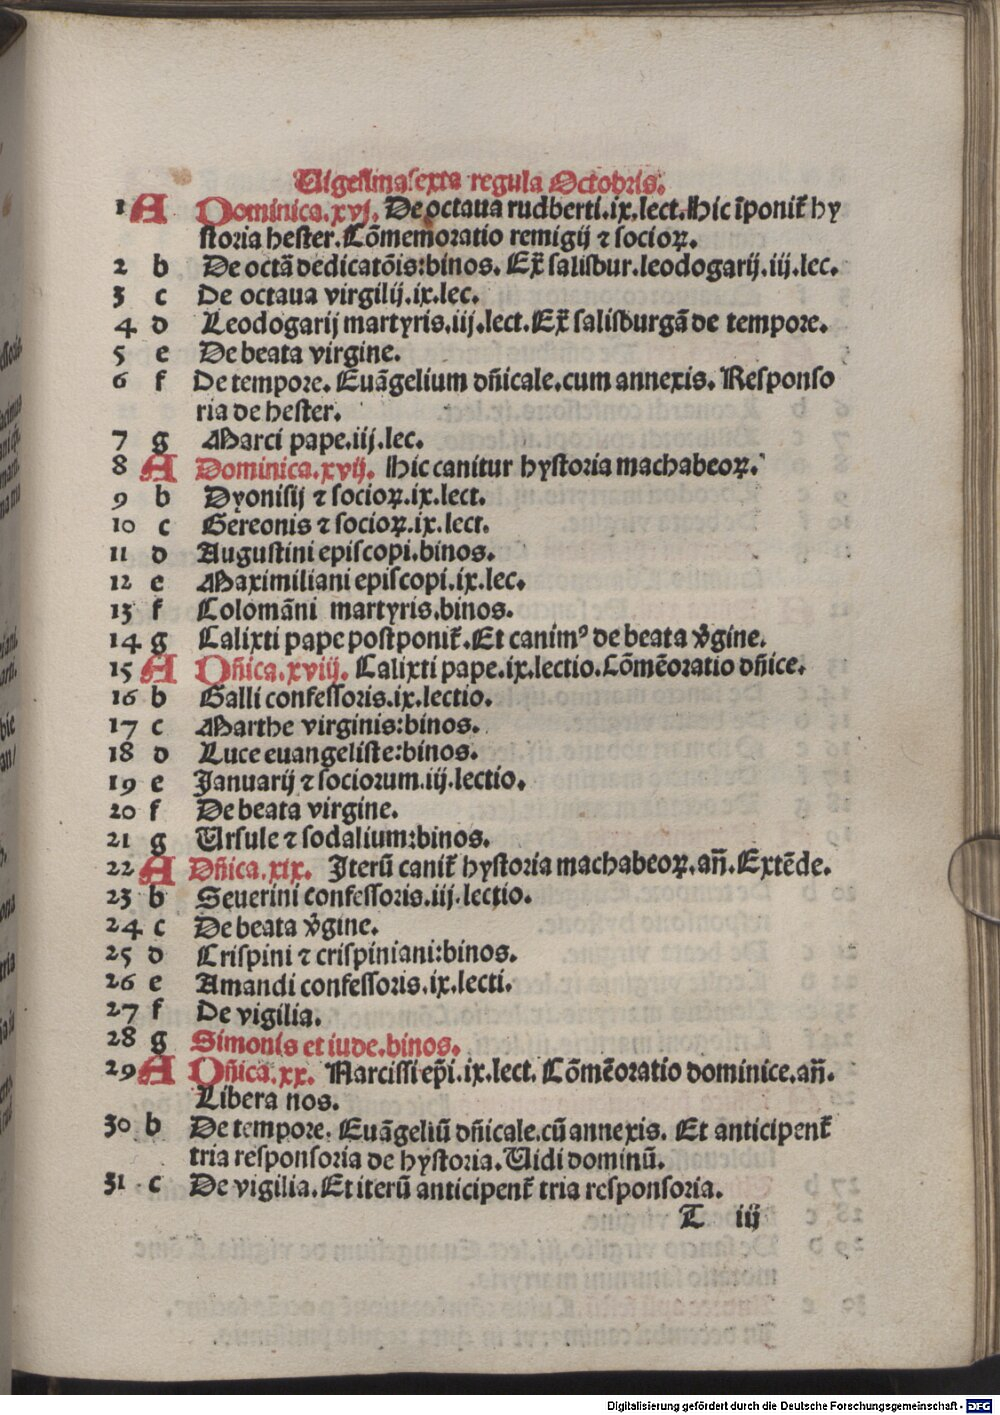 Uigesimasexta regula Octobris.
1 A Dominica.xvj. De octaua rudberti.ix.lect.Hic īponit᷑ hy
storia hester.Cōmemoratio remigij ⁊ socioꝝ.
2 b De octā dedicatōis:binos. Ex̄ salisbur.leodogarij.iij.lec.
3 c De octaua virgilij.ix.lec.
4 d Leodogarij martyris.iij.lect.Ex̄ salisburgā de tempore.
5 e De beata virgine.
6 f De tempore. Euāgelium dn̄icale.cum annexis. Responso
ria de hester.
7 g Marci pape.iij.lec.
8 A Dominica.xvij. Hic canitur hystoria machabeoꝝ.
9 b Dyonisij ⁊ socioꝝ.ix.lect.
10 c Gereonis ⁊ socioꝝ.ix.lect.
11 d Augustini episcopi.binos.
12 e Maximiliani episcopi.ix.lec.
13 f Colomāni martyris.binos.
14 g Calixti pape postponit᷑.Et canimꝰ de beata v̾gine.
15 A Dn̄ica.xviij. Calixti pape.ix.lectio.Cōmēoratio dn̄ice.
16 b Galli confessoris.ix.lectio.
17 c Marthe virginis:binos.
18 d Luce euangeliste:binos.
19 e Januarij ⁊ sociorum.iij.lectio.
20 f De beata virgine.
21 g Ursule ⁊ sodalium:binos.
22 A Dn̄ica.xix. Jterū canit᷑ hystoria machabeoꝝ.an̄.Extēde.
23 b Seuerini confessoris.iij.lectio.
24 c De beata v̾gine.
25 d Crispini ⁊ crispiniani:binos.
26 e Amandi confessoris.ix.lecti.
27 f De vigilia.
28 g Simonis et iude.binos.
29 A Dn̄ica.xx. Narcissi ep̄i.ix.lect. Cōmēoratio dominice.an̄.
Libera nos.
30 b De tempore. Euāgeliū dn̄icale.cū annexis. Et anticipent᷑
tria responsoria de hystoria.Uidi dominū.
31 c De vigilia.Et iterū anticipent᷑ tria responsoria.
T iij
Digitalisierung gefördert durch die Deutsche Forschungsgemeinschaft - DFG